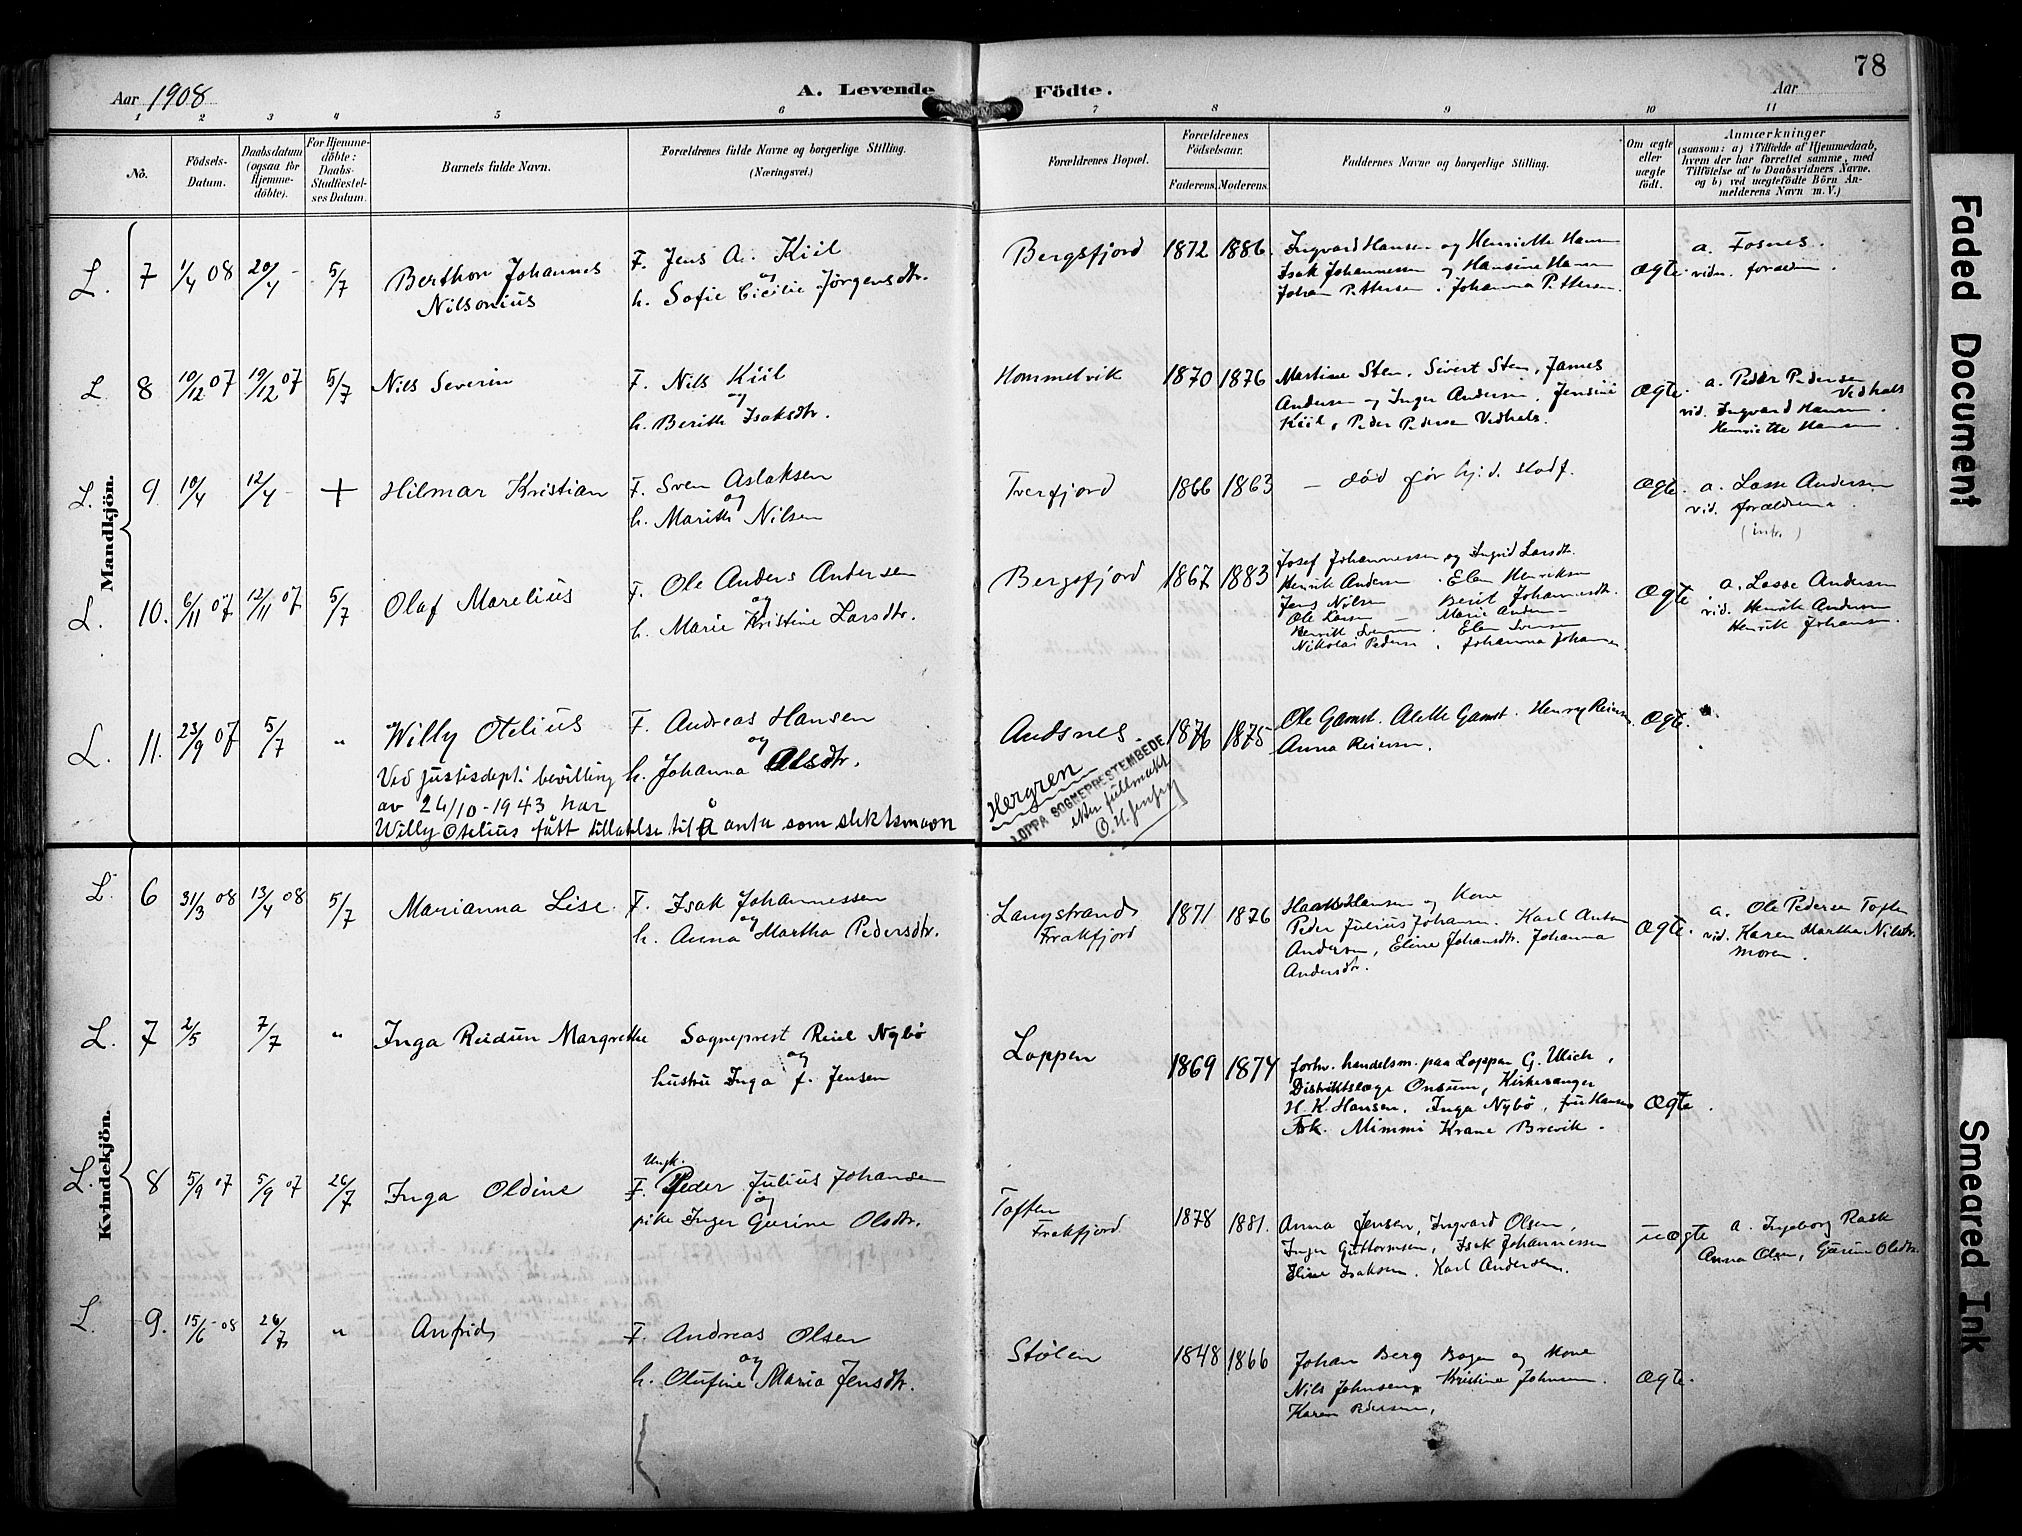 78
Aar 1908 A. Levende Födte. Aar
1 2 3 4 5 6 7 8 9 10 11
No. Födsels-Datum. Daabsdatum (ogsaa for Hjemme-döbte). For Hjemme-döbte: Daabs-Stadfæstel-ses Datum. Barnets fulde Navn. Forældrenes fulde Navne og borgerlige Stilling. (Næringsvei.) Forældrenes Bopæl. Forældrenes Födselsaar. Faderens. Moderens. Faddernes Navne og borgerlige Stilling. Om ægte eller uægte födt. Anmærkninger (saasom: a) i Tilfælde af Hjemmedaab, hvem der har forrettet samme, med Tilföielse af to Daabsvidners Navne, og b) ved uægtefödte Börn An-melderens Navn m. V.)
Mandkjön.
L. 7 1/4 08 20/4 - 5/7 Berthon Johannes Nilsonius
F. Jens A. Kiil
og
h. Sofie Cicilie Jørgensdtr.
Bergsfjord 1872 1886
Ingvard Hansen og Henriette Hansen
Isak Johannessen og Hansine Hansen
Johan Pettersen . Johanna Pettersen.
Ægte
a. Fosnes.
vidn. forældrn.
L 8 10/12 07 19/12 07 5/7 Nils Severin
F. Nils Kiil
og
h. Berith Isaksdtr.
Hommelvik 1870 1876
Martine Sten, Sivert Sten, James
Andersen og Inger Andersen, Jensine
Kiil, Peder Pedersen Vedhals.
Ægte
a. Peder Pedersen Vedhals
vid. Ingvard Hansen.
Henriette Hansen.
L. 9 10/4 12/4 - + Hilmar Kristian
F. Sven Aslaksen
og
h. Marith Nilsen
Tverfjord 1866 1863
– død før hj. d. stadf.
Ægte.
a. Lasse Andersen
vid. forældrene.
(intr.)
L. 10. 6/11 07 12/11 07 5/7 Olaf Marelius
F. Ole Anders Andersen
og
h. Marie Kristine Larsdtr.
Bergsfjord 1867 1883
Josef Johannessen og Ingrid Larsdtr.
Henrik Andersen . Elen Henriksen
Jens Nilsen Berit Johannesdtr.
Ole Larsen – Marie Andersen –
Henrik Svensen . Elen Svensen
Nikolai Pedersen , Johanna Johannes
Ægte
a. Lasse Andersen
vid. Henrik Andersen
Henrik Johansen.
L. 11. 23/9 07 5/7 " Willy Otelius
F. Andreas Hansen
og
h. Johanna Olsdtr.
Andsnes. 1876 1875
Ole Gamst. Alette Gamst. Henry Reiersen
Anna Reiersen.
Ægte.
Ved justisdept: bevilling
av 26/10-1943 har
Willy Otelius fått tillatelse til å anta som slektsnavn
Hergren
LOPPA SOGNEPRESTEMBEDE
etter fullmakt
Kvindekjön.
L. 6 31/3 08 13/4 08 5/7 Marianna Lise
F. Isak Johannessen
og
h. Anna Martha Pedersdtr.
Langstrand Frakfjord 1871 1876
Hans Hansen og Kone
Peder Julius Johansen. Karl Anton
Andersen, Eline Johansdtr. Johanna
Andersdtr.
Ægte.
a. Ole Pedersen Toften
vid. Karen Martha Nilsdtr.
moren.
L. 7 2/5 7/7 " Inga Reidun Margrethe
Sogneprest Reiel Nybø
og
hustru Inga f. Jensen
Loppen 1869 1874
forhv. handelsm. paa Loppen G. Ulich,
Distriktslæge Onsum, Kirkesanger
H. K. Hansen. Inga Nybø, fru Hansen
Frk. Mimmi Krane Brevik.
Ægte.
L. 8 5/9 07 5/9 07 26/7 Inga Oldine
Ungk.
F. Peder Julius Johansen
og
pike Inger Gurine Olsdtr.
Toften Frakfjord 1878 1881.
Anna Jensen, Ingvard Olsen,
Inger Guttormsen, Isak Johannessen
Eline Isaksen. Karl Andersen.
uægte
a. Ingeborg Rask
Anna Olsen, Gurine Olsdtr.
L. 9. 15/6 08 26/7 " Anfrid
F. Andreas Olsen
og
h. Olufine Maria Jensdtr.
Stølen 1848 1866
Johan Berg Bogen og Kone
Nils Johnsen, Kristine Johnsen.
Karen Pedersen,
Ægte.
Faded Document
Smeared Ink